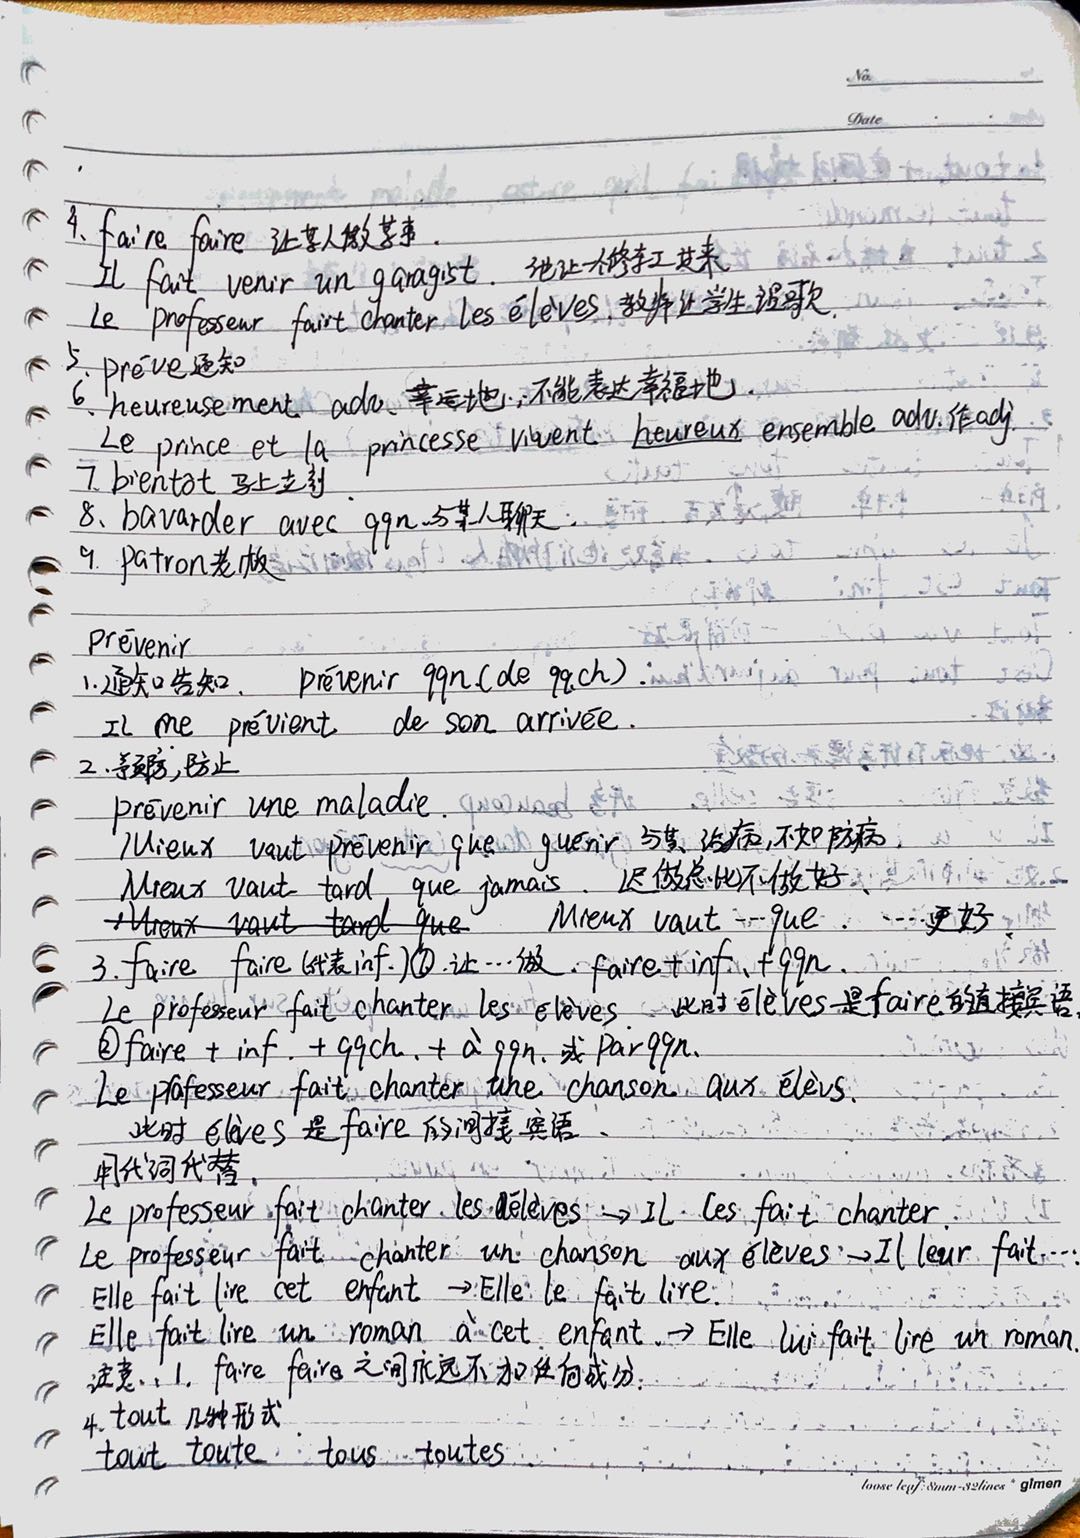 No.
Date
4、faire faire 让某人做某事.
Il fait venir un garagist. 他让一个修车工过来
Le professeur fairt chanter les élèves. 教师让学生唱歌.
5. préve 通知
6、heureusement adv、幸运地;不能表达幸福地.
Le prince et la princesse vivent heureux ensemble adv.作adj.
7. bientôt 马上立刻
8、bavarder avec qqn.与某人聊天.
9. patron 老板
prévenir
1.通知告知. prévenir qqn(de qqch).
Il me prévient de son arrivée.
2.预防;防止
prévenir une maladie.
Mieux vaut prévenir que guérir 与其治病,不如防病.
Mieux vaut tard que jamais. 迟做总比不做好
Mieux vaut tard que Mieux vaut ... que. ...更好.
3. faire faire (代表inf.)① 让...做. faire+inf、+qqn.
Le professeur fait chanter les élèves 此时élèves是faire的直接宾语.
② faire + inf. + qqch. + à qqn. 或 par qqn.
Le professeur fait chanter une chanson aux élèvs.
此时élèves是faire的间接宾语.
用代词代替.
Le professeur fait chanter les élèves → Il les fait chanter.
Le professeur fait chanter un chanson aux élèves → Il leur fait...
Elle fait lire cet enfant → Elle le fait lire.
Elle fait lire un roman à cet enfant. → Elle lui fait lire un roman.
注意:1. faire faire 之间永远不加任何成分.
4. tout 几种形式
tout toute tous toutes
loose leaf:8mm-32lines * gimen